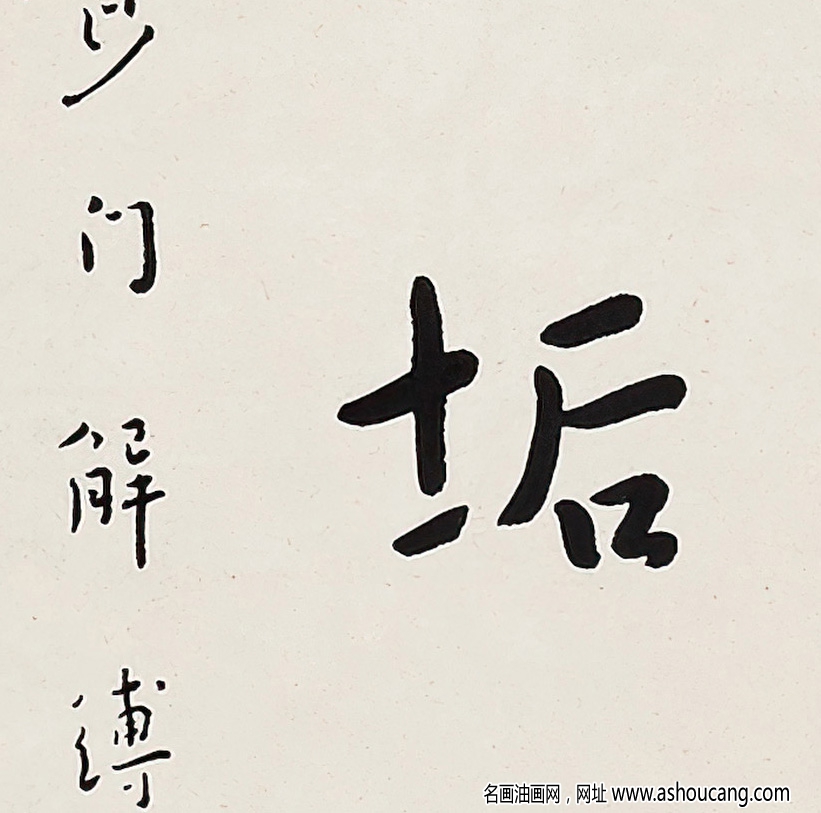 垢
沙门解缚
名画油画网，网址 www.ashoucang.com